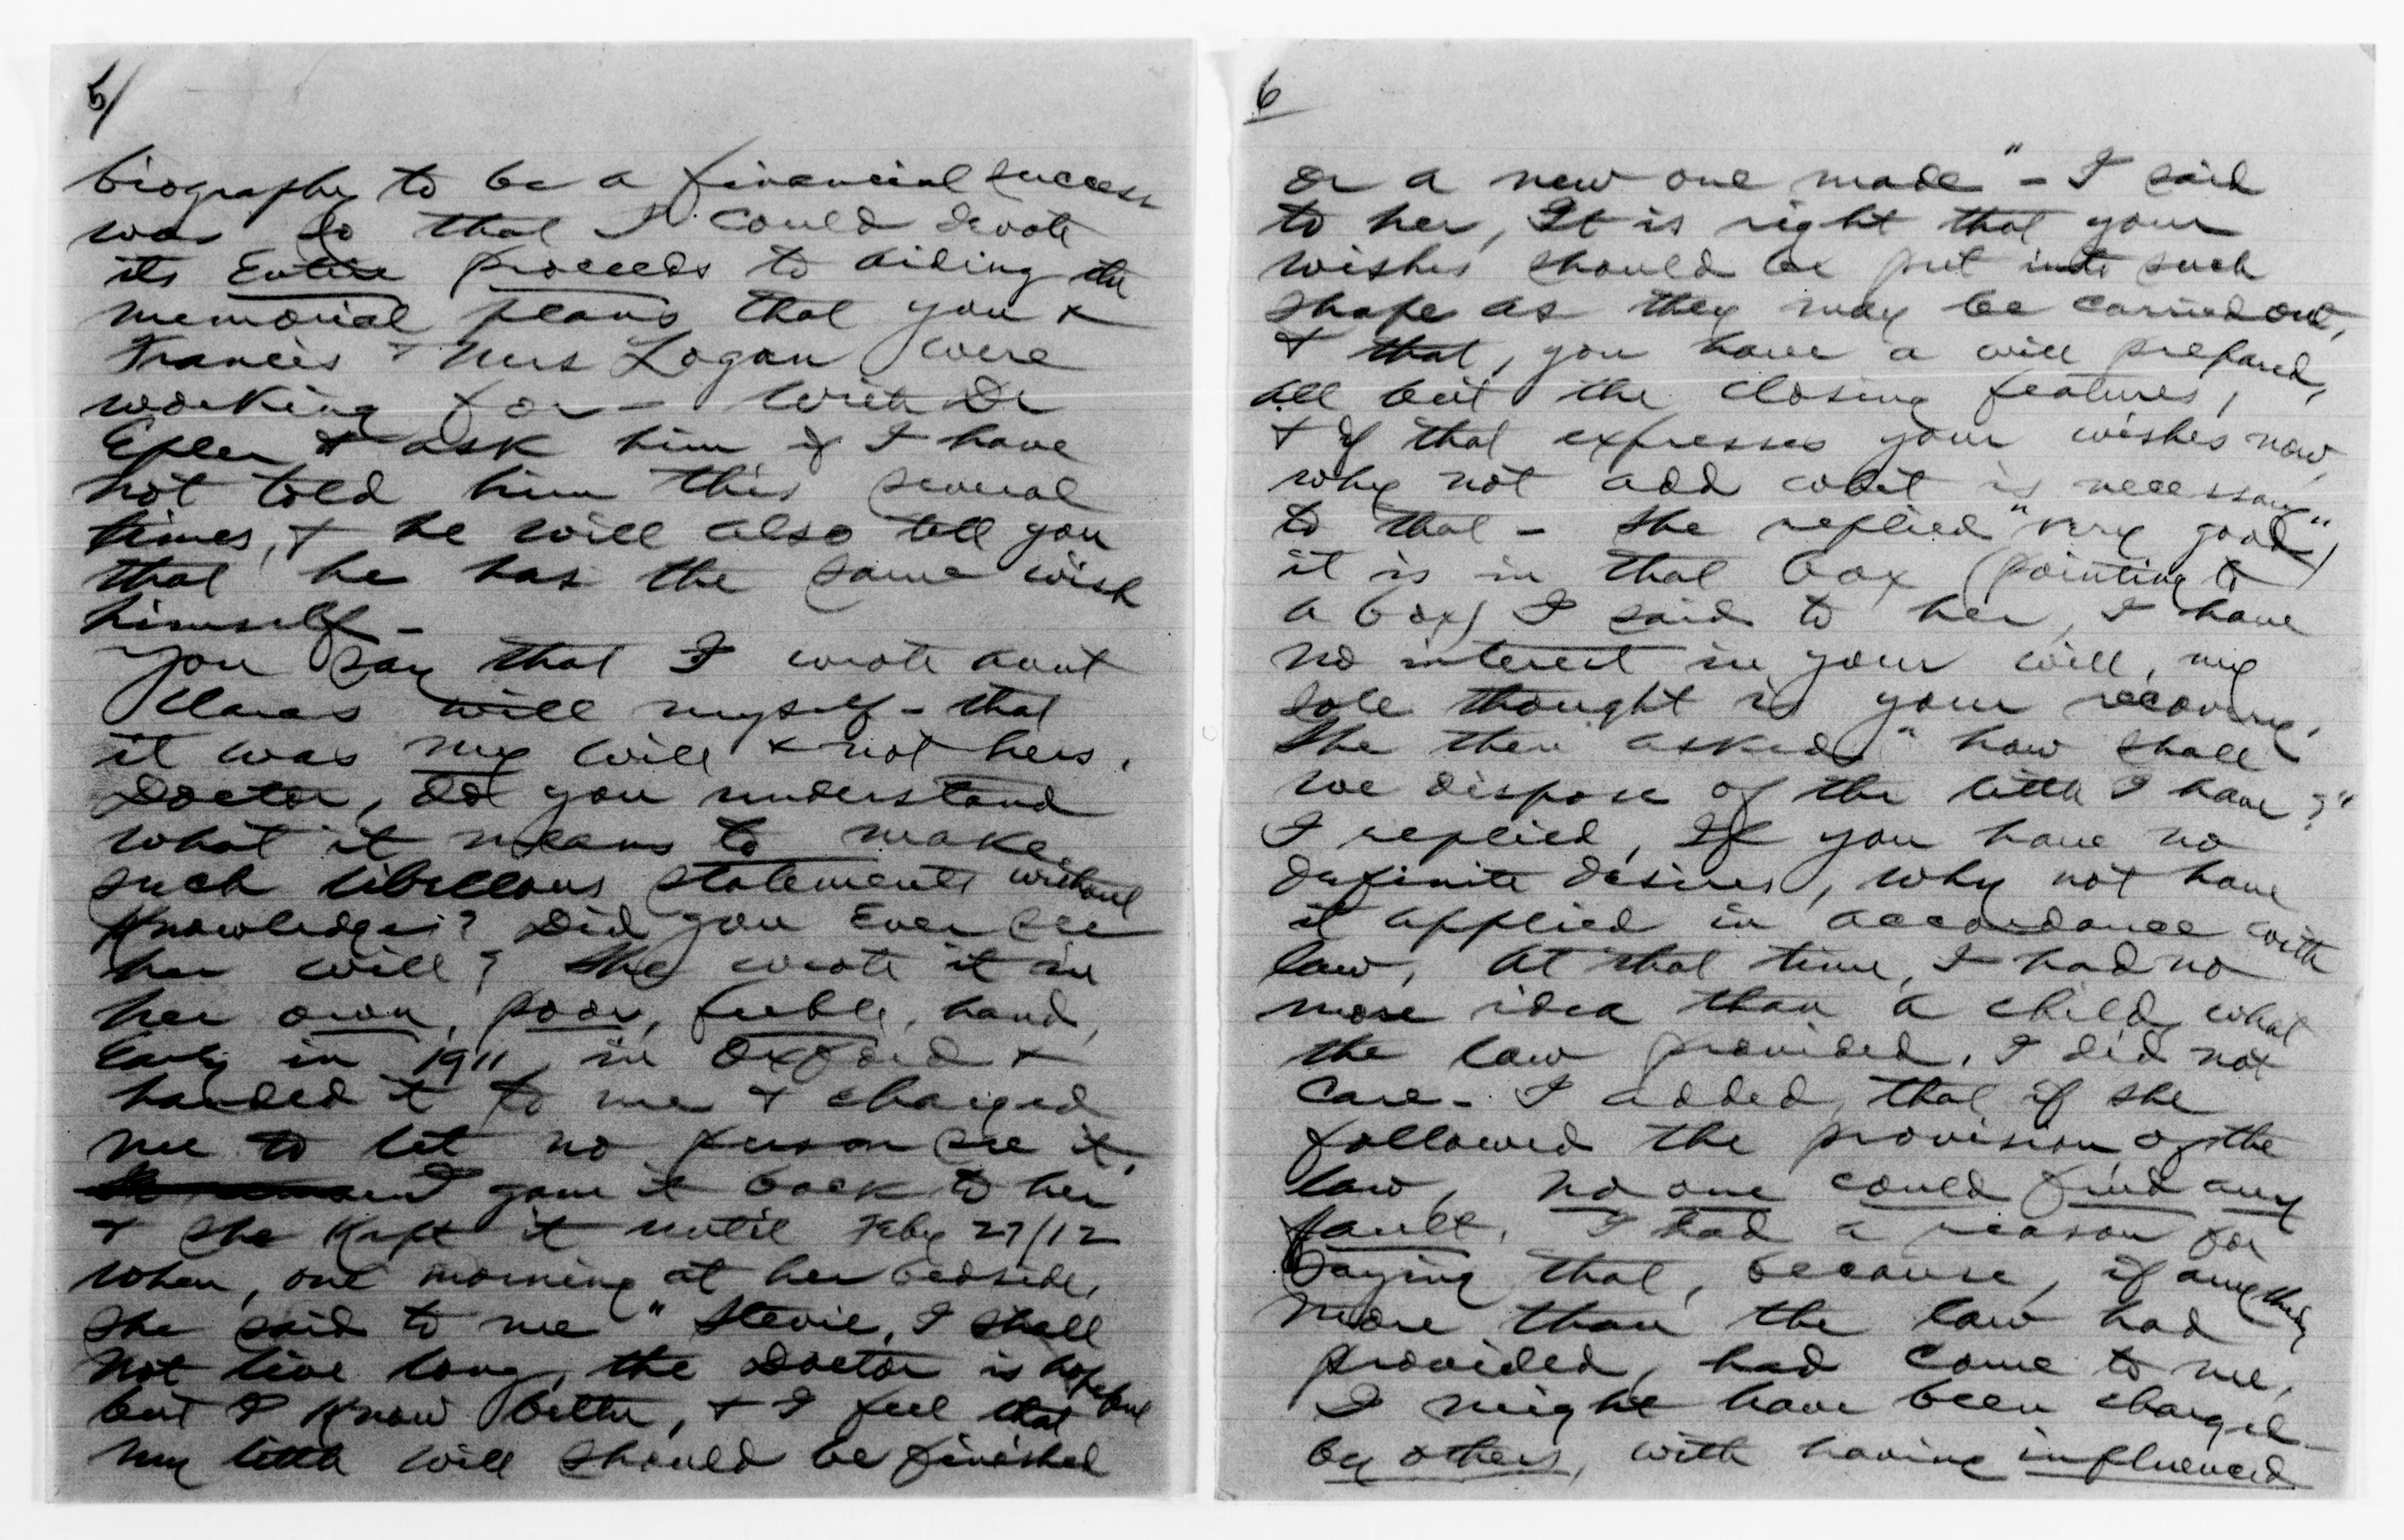 5/
biography to be a financial success
was so that I could devote
its Entire proceeds to aiding the
memorial plans that you &
Francis & Mrs Logan were
working for - Write Dr
Epler & ask him if I have
not told him this several
times, & he will also tell you
that he has the same wish
himself -
You say that I wrote aunt
Claras will myself - that
it was my will & not hers.
Doctor, do you understand
what it means to make
such libellous statements without
knowledge? Did you Ever see
her will? She wrote it in
her own, poor, feeble, hand,
Early in 1911, in Oxford &
handed it to me & charged
me to let no person see it,
I gave it back to her
& she Kept it until Feby 27/12
when, one morning at her bedside,
she said to me "Stevie, I shall
not live long, the Doctor is hopeful
but I Know better, & I feel that
my little will should be finished
6
or a new one made" - I said
to her, It is right that your
wishes should be put into such
shape as they may be carried out,
& that, you have a will prepared,
all but the closing features,
& if that expresses your wishes now,
why not add what is necessary
to that - She replied "very good",
it is in that box (pointing to
a box) I said to her, I have
no interest in your will, my
sole thought is your recovery.
She then asked "how shall
we dispose of the little I have?"
I replied, If you have no
definite desires, why not have
it applied in accordance with
law, At that time, I had no
more idea than a child, what
the law provided, I did not
care - I added, that, if she
followed the provision of the
law, no one could find any
fault. I had a reason for
saying that, because, if anything
more than the law had
provided, had come to me,
I might have been charged
by others, with having influenced